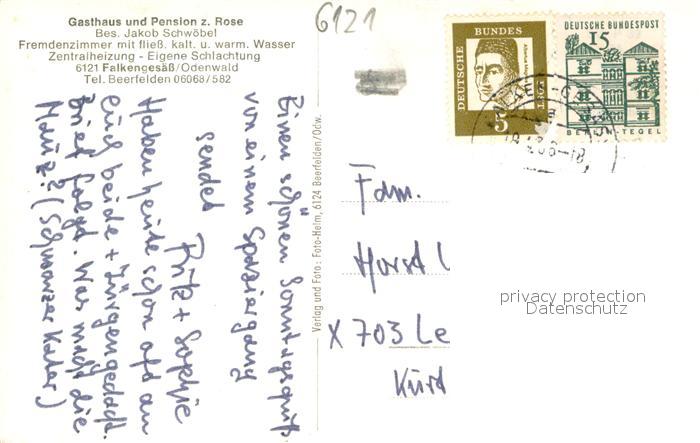 Gasthaus und Pension z. Rose
Bes. Jakob Schwöbel
Fremdenzimmer mit fließ. kalt. u. warm. Wasser
Zentralheizung - Eigene Schlachtung
6121 Falkengesäß/Odenwald
Tel. Beerfelden 06068/582
Einen schönen Sonntagsgruß
von einem Spaziergang
sendet
Fritz + Sophie
Haben heute schon oft an
Euch beide + Jürgen gedacht.
Brief folgt. Was macht die
Mautz? (Schwarzer Kater)
Verlag und Foto: Foto-Helm, 6124 Beerfelden/Odw.
6121
DEUTSCHE
BUNDES
POST
5
DEUTSCHE BUNDESPOST
15
BERLIN-TEGEL
Fam.
Horst
X 703 Le
Kurt
privacy protection
Datenschutz